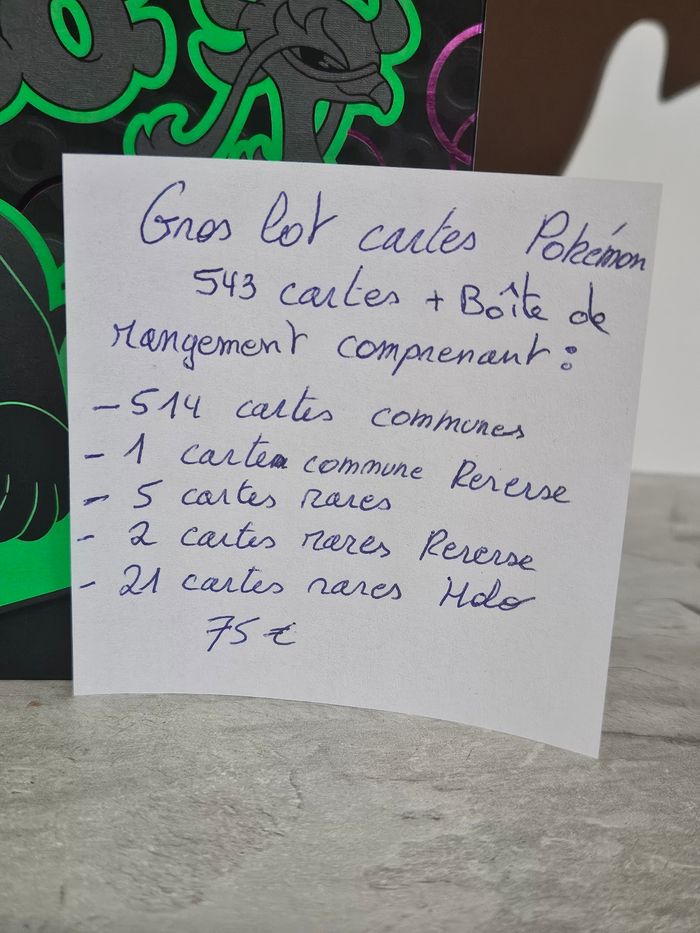 Gros lot cartes Pokémon
543 cartes + Boîte de
rangement comprenant :
- 514 cartes communes
- 1 carte commune Reverse
- 5 cartes rares
- 2 cartes rares Reverse
- 21 cartes rares Holo
75 €